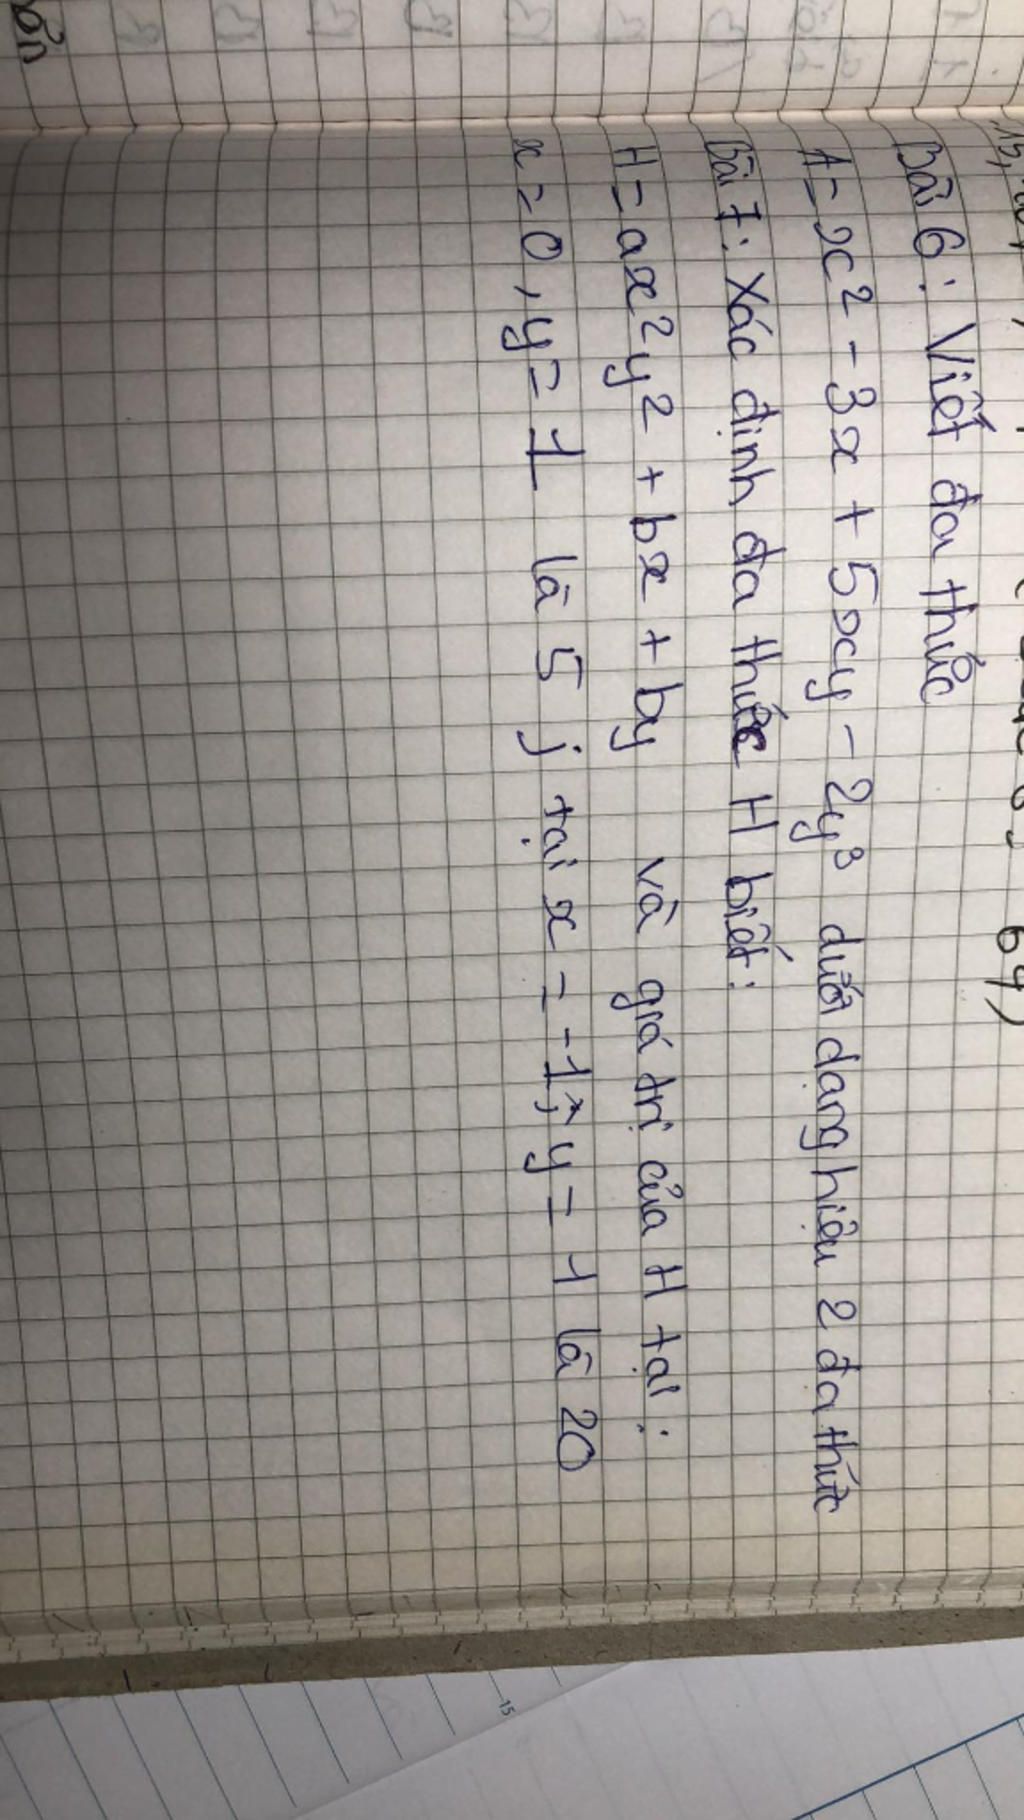 Bài 6: Viết đa thức
A = x² - 3x + 5xy - 2y³ dưới dạng hiệu 2 đa thức
Bài 7: Xác định đa thức H biết:
H = ax²y² + bx + by và giá trị của H tại:
x = 0, y = 1 là 5; tại x = -1; y = 1 là 20
15